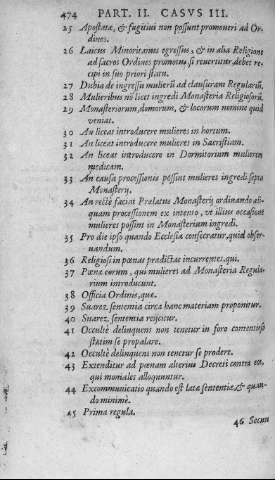 474 PART. II. CASUS III.
25 Apostatæ, & fugitivi non possunt promoveri ad Or-
dines.
26 Laicus Minoritanus egressus, & in alia Religione
ad sacros Ordines promotus, si revertitur, debet re-
cipi in suo priori statu.
27 Dubia de ingressu mulierū ad clausuram Regulariū.
28 Mulieribus nō licet ingredi Monasteria Religiosorū.
29 Monasteriorum, domorum, & locorum nomine quid
veniat.
30 An liceat introducere mulieres in hortum.
31 An liceat introducere mulieres in Sacristiam.
32 An liceat introducere in Dormitorium mulierem
medicam.
33 An causa processionis possint mulieres ingredi septa
Monasterij.
34 An rectè faciat Prælatus Monasterij ordinando ali-
quam processionem ex intento, vt illius occasione
mulieres possint in Monasterium ingredi.
35 Pro die ipso quando Ecclesia consecratur, quid obser-
uandum.
36 Religiosi in pœnas prædictas incurrentes, qui.
37 Pœnæ eorum, qui mulieres ad Monasteria Regula-
rium introducunt.
38 Officia Ordinis, quæ.
39 Suarez sententia circa hanc materiam proponitur.
40 Suarez sententia reijcitur.
41 Occultè delinquens non tenetur in foro contentioso
statim se propalare.
42 Occultè delinquens non tenetur se prodere.
43 Extenditur ad pœnam alterius Decreti contra eos,
qui moniales alloquuntur.
44 Excommunicatio quando est latæ sententiæ, & quan-
do minimè.
45 Prima regula.
46 Secun